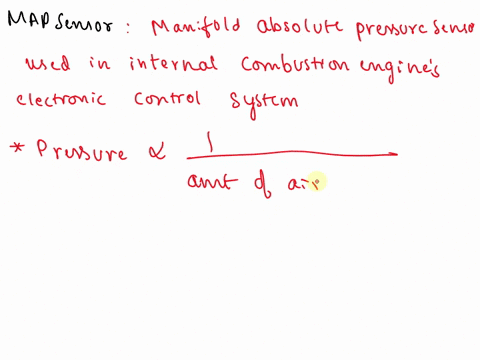 MAP Sensor : Manifold absolute pressure Senso
used in internal combustion engine's
electronic control system
* Pressure ∝ 1
amt of air